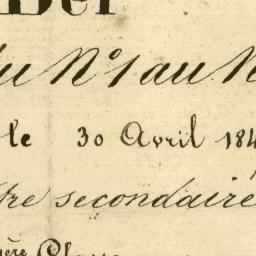 Der
du N° 1 au N
le 30 Avril 184
tre secondaire
ère Classe